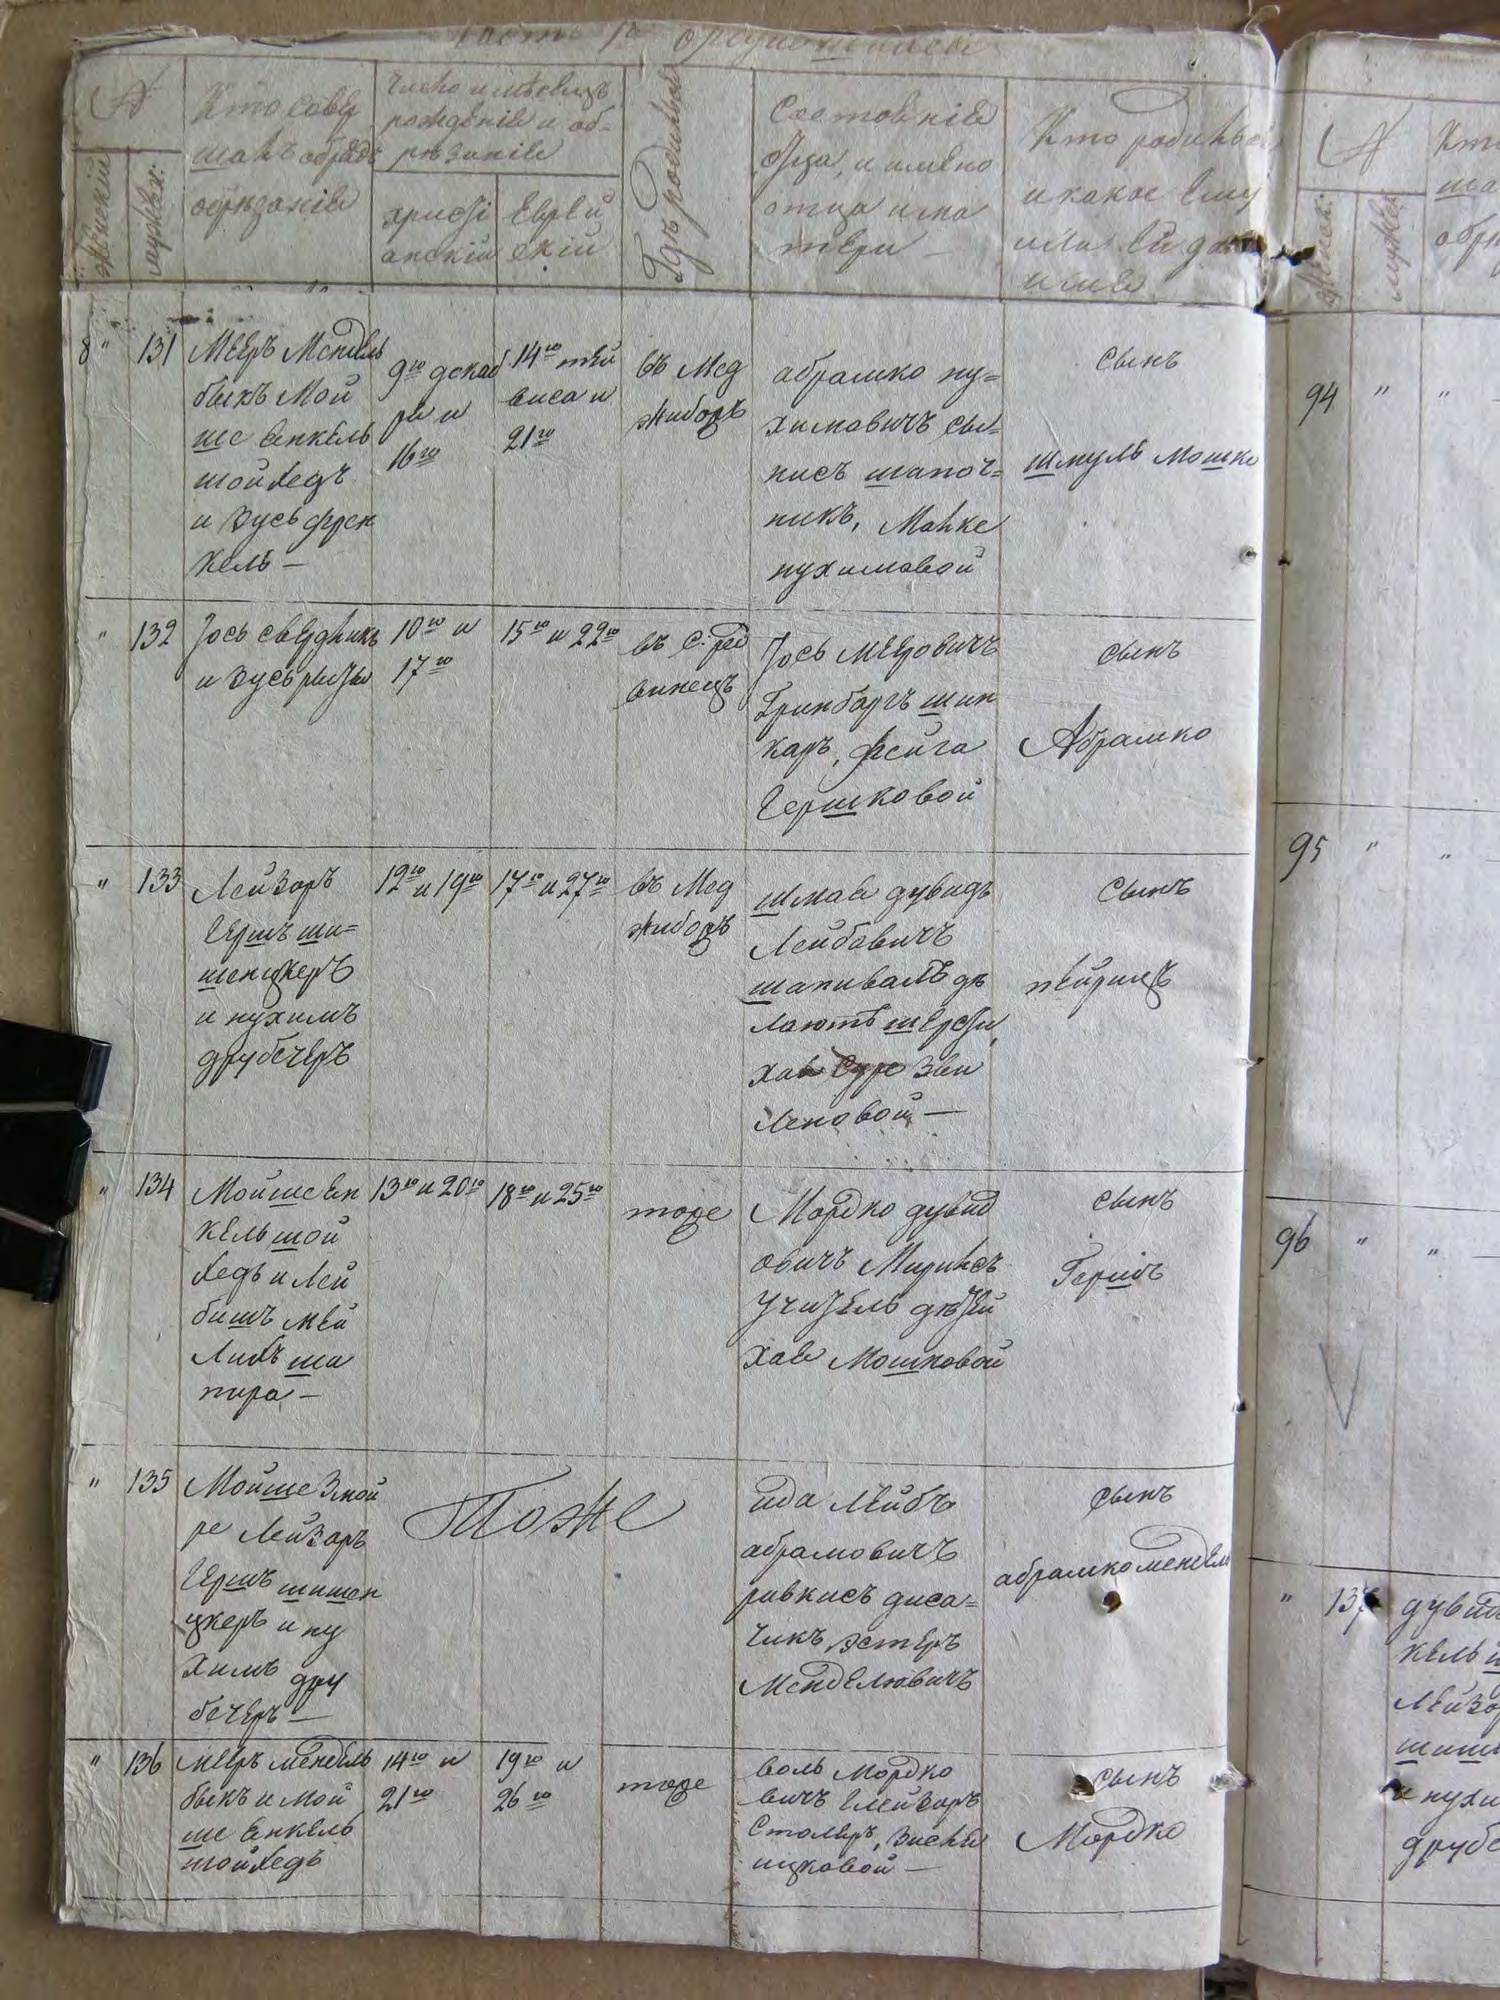 Часть 1я о родившихся
№
женскій
мужеск:
Кто совер
шалъ обрядъ
обрѣзанія
Число и мѣсяцъ
рожденія и об-
рѣзанія
христі
анскій
Еврей
скій
Гдѣ родился
Состояніе
отца, и имена
отца и ма
тери
Кто родился
и какое ему
или ей дано
имя
8 " 131
Мееръ Мендель
быкъ Мой
ше Янкель
шойхедъ
и Зусь френ
кель —
9го декаб
ря и
16го
14го тей
виса и
21го
въ Мед
жибожъ
абрамко ну=
химовичъ
шапоч=
никъ, Малке
нухимовой
сынъ
шмуль мошко
" 132
Iось свердликъ
и Зусь
10го и
17го
15го и 22го
въ с.
Iось Мееровичъ
Гринбаргъ шин
каръ, фейга
Гершковой
сынъ
Абрамко
" 133
Лейзоръ
Гершъ ши=
шенцкеръ
и нухимъ
друбечеръ
12го и 19го
17го и 27го
въ Мед
жибожъ
шмая дувидъ
Лейбовичъ
шаповалъ дѣ
лаютъ шерсти,
хая Зей
леновой —
сынъ
пейрицъ
" 134
Мойше Ян
кель шой
хедъ и Лей
бишъ мей
шa
пира —
13го и 20го
18го и 25го
тоже
Мордко дувид
овичъ
Учитель дѣтей
хая Мошковой
сынъ
Гершъ
" 135
Мойше Змой
ре Лейзоръ
Гершъ шишен
цкеръ и ну
химъ дру
бечеръ —
Тоже
ида Лейбъ
абрамовичъ
ривкисъ
эстеръ
Менделювичъ
сынъ
абрамко мендель
" 136
мееръ мендель
быкъ и мой
ше Янкель
шойхедъ
14го и
21го
19го и
26го
тоже
воль Мордко
вичъ
Столеръ,
ицковой —
сынъ
Мордко
№
женск:
мужеск:
94 " "
95 " "
96 " "
" 137
дувидъ
кель
Лейзо
шиш
и нухи
друбе